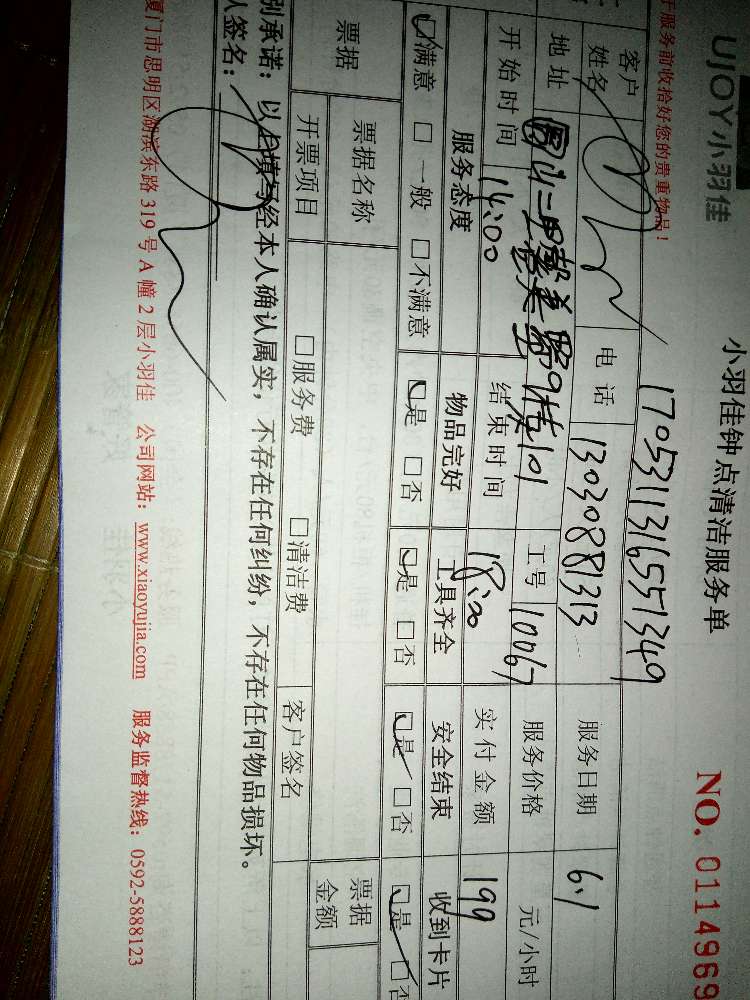 UJOY小羽佳
小羽佳钟点清洁服务单
NO. 0114969
于服务前收拾好您的贵重物品！
17053113165551349
客户姓名 电话 13030881313 服务日期 6.1
地址 9栋101 工号 10067 服务价格 元/小时
开始时间 14:00 结束时间 18:00 实付金额 199
服务态度 物品完好 工具齐全 安全结束 收到卡片
☑满意 □一般 □不满意 ☑是 □否 ☑是 □否 ☑是 □否 ☑是 □否
票据 票据名称 票据金额
开票项目 □服务费 □清洁费 客户签名
别承诺：以上填写经本人确认属实，不存在任何纠纷，不存在任何物品损坏。
人签名：
厦门市思明区湖滨东路 319 号 A 幢 2 层小羽佳 公司网站：www.xiaoyujia.com 服务监督热线：0592-5888123